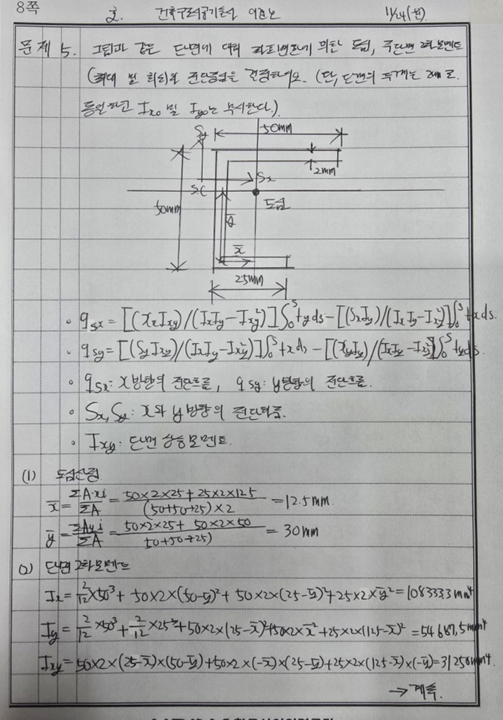 8쪽
2. 건축구조 11/24 (일)
문제 5. 그림과 같은 단면에 대해 좌표변환에 의한 도심, 주단면 2차모멘트
(최대 및 최소)와 전단중심을 결정하시오. (단, 단면의 두께는 2mm로
동일하고 Ixo 및 Iyo는 무시한다.)
50mm
Sy
2mm
Sx
SC
50mm
도심
ȳ
x̄
25mm
∘ qsx = [(SxIxy)/(IxIy-Ixy²)]∫₀ˢtyds - [(SxIx)/(IxIy-Ixy²)]∫₀ˢtxds.
∘ qsy = [(SyIxy)/(IxIy-Ixy²)]∫₀ˢtxds - [(SyIy)/(IxIy-Ixy²)]∫₀ˢtyds.
∘ qsx : x방향의 전단흐름, qsy : y방향의 전단흐름.
∘ Sx, Sy : x와 y방향의 전단력.
∘ Ixy : 단면 상승모멘트.
(1) 도심산정
x̄ = ΣAixi/ΣA = (50×2×25+25×2×12.5)/((50+50+25)×2) = 12.5mm
ȳ = ΣAyi/ΣA = (50×2×25+50×2×50)/(50+50+25) = 30mm
(2) 단면 2차모멘트
Ix = 2/12×50³ + 50×2×(50-ȳ)² + 50×2×(25-ȳ)² + 25×2×ȳ² = 108333.3mm⁴
Iy = 2/12×50³ + 2/12×25³ + 50×2×(25-x̄)² + 50×2×x̄² + 25×2×(12.5-x̄)² = 54687.5mm⁴
Ixy = 50×2×(25-x̄)×(50-ȳ) + 50×2×(-x̄)×(25-ȳ) + 25×2×(12.5-x̄)×(-ȳ) = 31250mm⁴.
→ 계속.